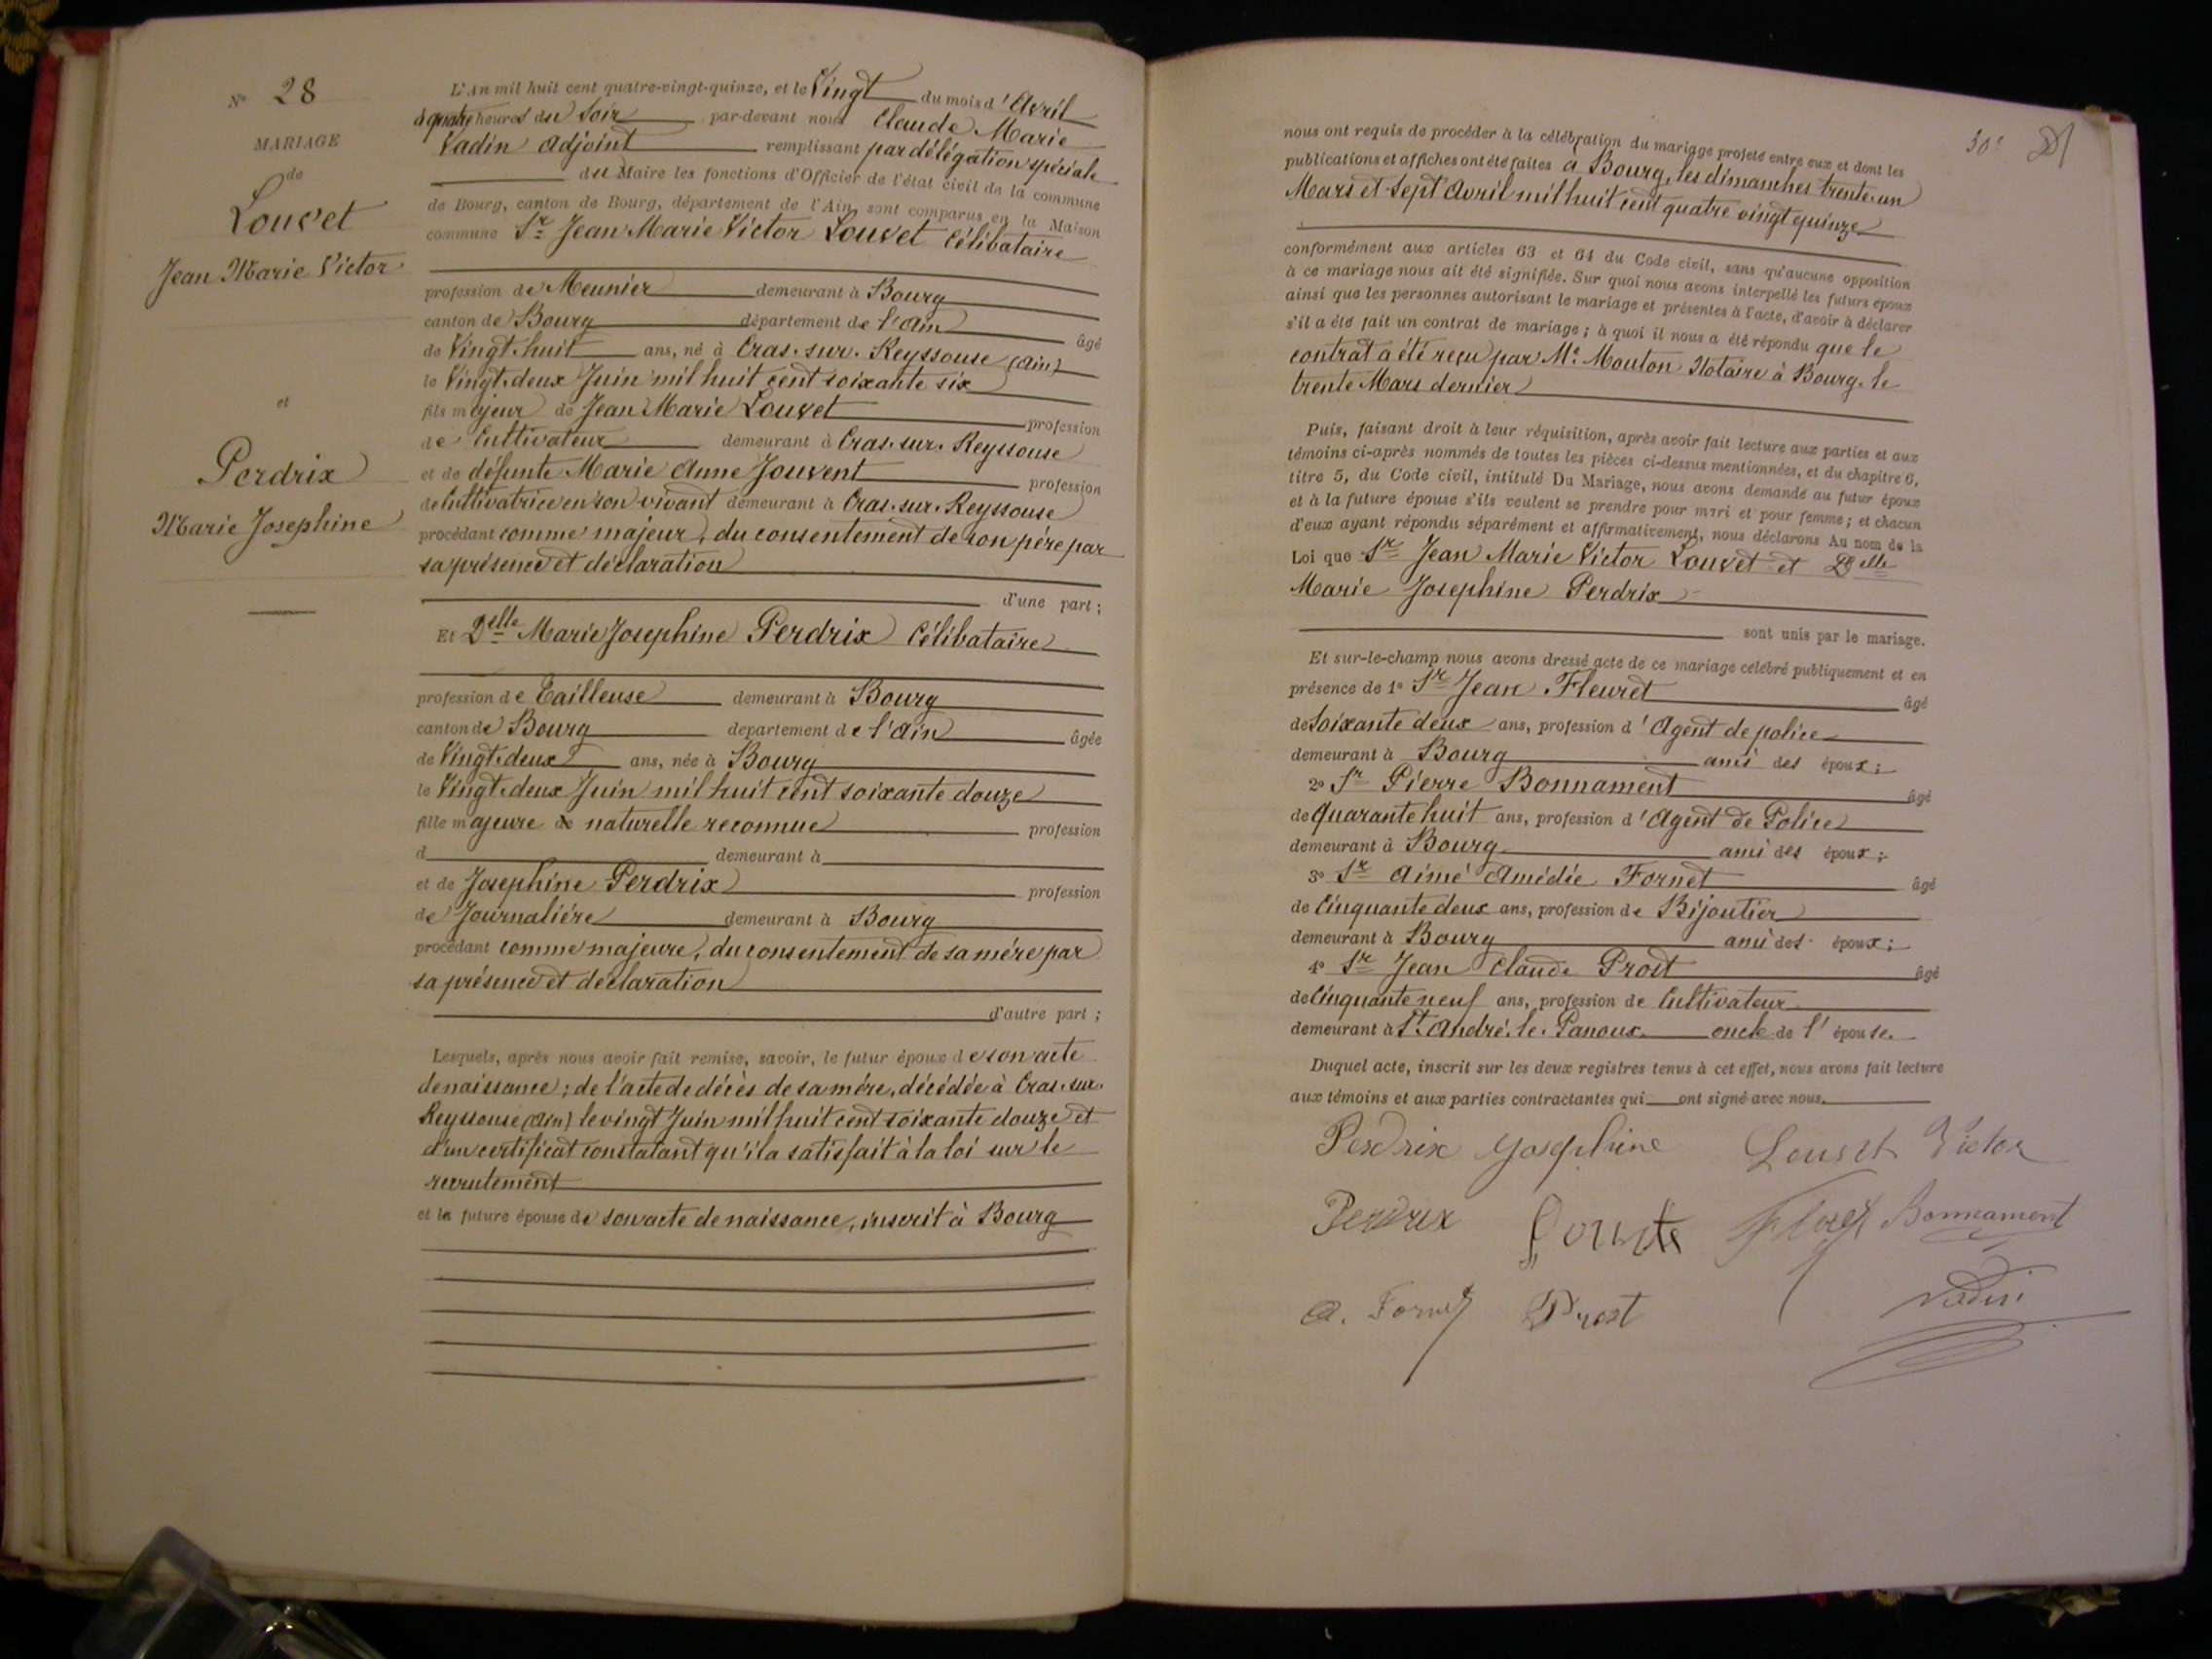 N° 28
MARIAGE
de
Louvet
Jean Marie Victor
et
Perdrix
Marie Josephine
L'An mil huit cent quatre-vingt-quinze, et le Vingt du mois d'Avril
à quatre heures du Soir par-devant nous Claude Marie
Vadin Adjoint remplissant par délégation spéciale
du Maire les fonctions d'Officier de l'état civil de la commune
de Bourg, canton de Bourg, département de l'Ain, sont comparus en la Maison
commune Sr Jean Marie Victor Louvet Célibataire
profession de Meunier demeurant à Bourg
canton de Bourg département de l'Ain âgé
de Vingt-huit ans, né à Cras-sur-Reyssouse (Ain)
le Vingt-deux Juin mil huit cent soixante six
fils majeur de Jean Marie Louvet profession
de Cultivateur demeurant à Cras-sur-Reyssouse
et de défunte Marie Anne Jouvent profession
de Cultivatrice en son vivant demeurant à Cras-sur-Reyssouse
procédant comme majeur, du consentement de son père par
sa présence et déclaration
d'une part ;
Et Delle Marie Josephine Perdrix Célibataire
profession de Tailleuse demeurant à Bourg
canton de Bourg departement de l'Ain âgée
de Vingt-deux ans, née à Bourg
le Vingt-deux Juin mil huit cent soixante douze
fille majeure de naturelle reconnue profession
d demeurant à
et de Josephine Perdrix profession
de Journalière demeurant à Bourg
procédant comme majeure, du consentement de sa mère par
sa présence et déclaration
d'autre part ;
Lesquels, après nous avoir fait remise, savoir, le futur époux de son acte
de naissance ; de l'acte de décès de sa mère, décédée à Cras-sur-
Reyssouse (Ain) le vingt Juin mil huit cent soixante douze et
d'un certificat constatant qu'il a satisfait à la loi sur le
recrutement
et la future épouse de son acte de naissance, inscrit à Bourg
50e
nous ont requis de procéder à la célébration du mariage projeté entre eux et dont les
publications et affiches ont été faites à Bourg, les dimanches trente-un
Mars et Sept Avril mil huit cent quatre vingt quinze
conformément aux articles 63 et 64 du Code civil, sans qu'aucune opposition
à ce mariage nous ait été signifiée. Sur quoi nous avons interpellé les futurs époux
ainsi que les personnes autorisant le mariage et présentes à l'acte, d'avoir à déclarer
s'il a été fait un contrat de mariage ; à quoi il nous a été répondu que le
contrat a été reçu par Me Mouton Notaire à Bourg, le
trente Mars dernier
Puis, faisant droit à leur réquisition, après avoir fait lecture aux parties et aux
témoins ci-après nommés de toutes les pièces ci-dessus mentionnées, et du chapitre 6,
titre 5, du Code civil, intitulé Du Mariage, nous avons demandé au futur époux
et à la future épouse s'ils veulent se prendre pour mari et pour femme ; et chacun
d'eux ayant répondu séparément et affirmativement, nous déclarons Au nom de la
Loi que Sr Jean Marie Victor Louvet et Delle
Marie Josephine Perdrix
sont unis par le mariage.
Et sur-le-champ nous avons dressé acte de ce mariage célébré publiquement et en
présence de 1° Sr Jean Fleuret âgé
de Soixante deux ans, profession d'Agent de police
demeurant à Bourg ami des époux ;
2° Sr Pierre Bonnament âgé
de Quarante huit ans, profession d'Agent de Police
demeurant à Bourg ami des époux ;
3° Sr Aimé Amédée Fornet âgé
de Cinquante deux ans, profession de Bijoutier
demeurant à Bourg ami des époux ;
4° Sr Jean Claude Prost âgé
de Cinquante neuf ans, profession de Cultivateur
demeurant à St André-le-Panoux oncle de l'épouse.
Duquel acte, inscrit sur les deux registres tenus à cet effet, nous avons fait lecture
aux témoins et aux parties contractantes qui ont signé avec nous.
Perdrix Josephine Louvet Victor
Perdrix Bonnament
A. Fornet Prost Vadin